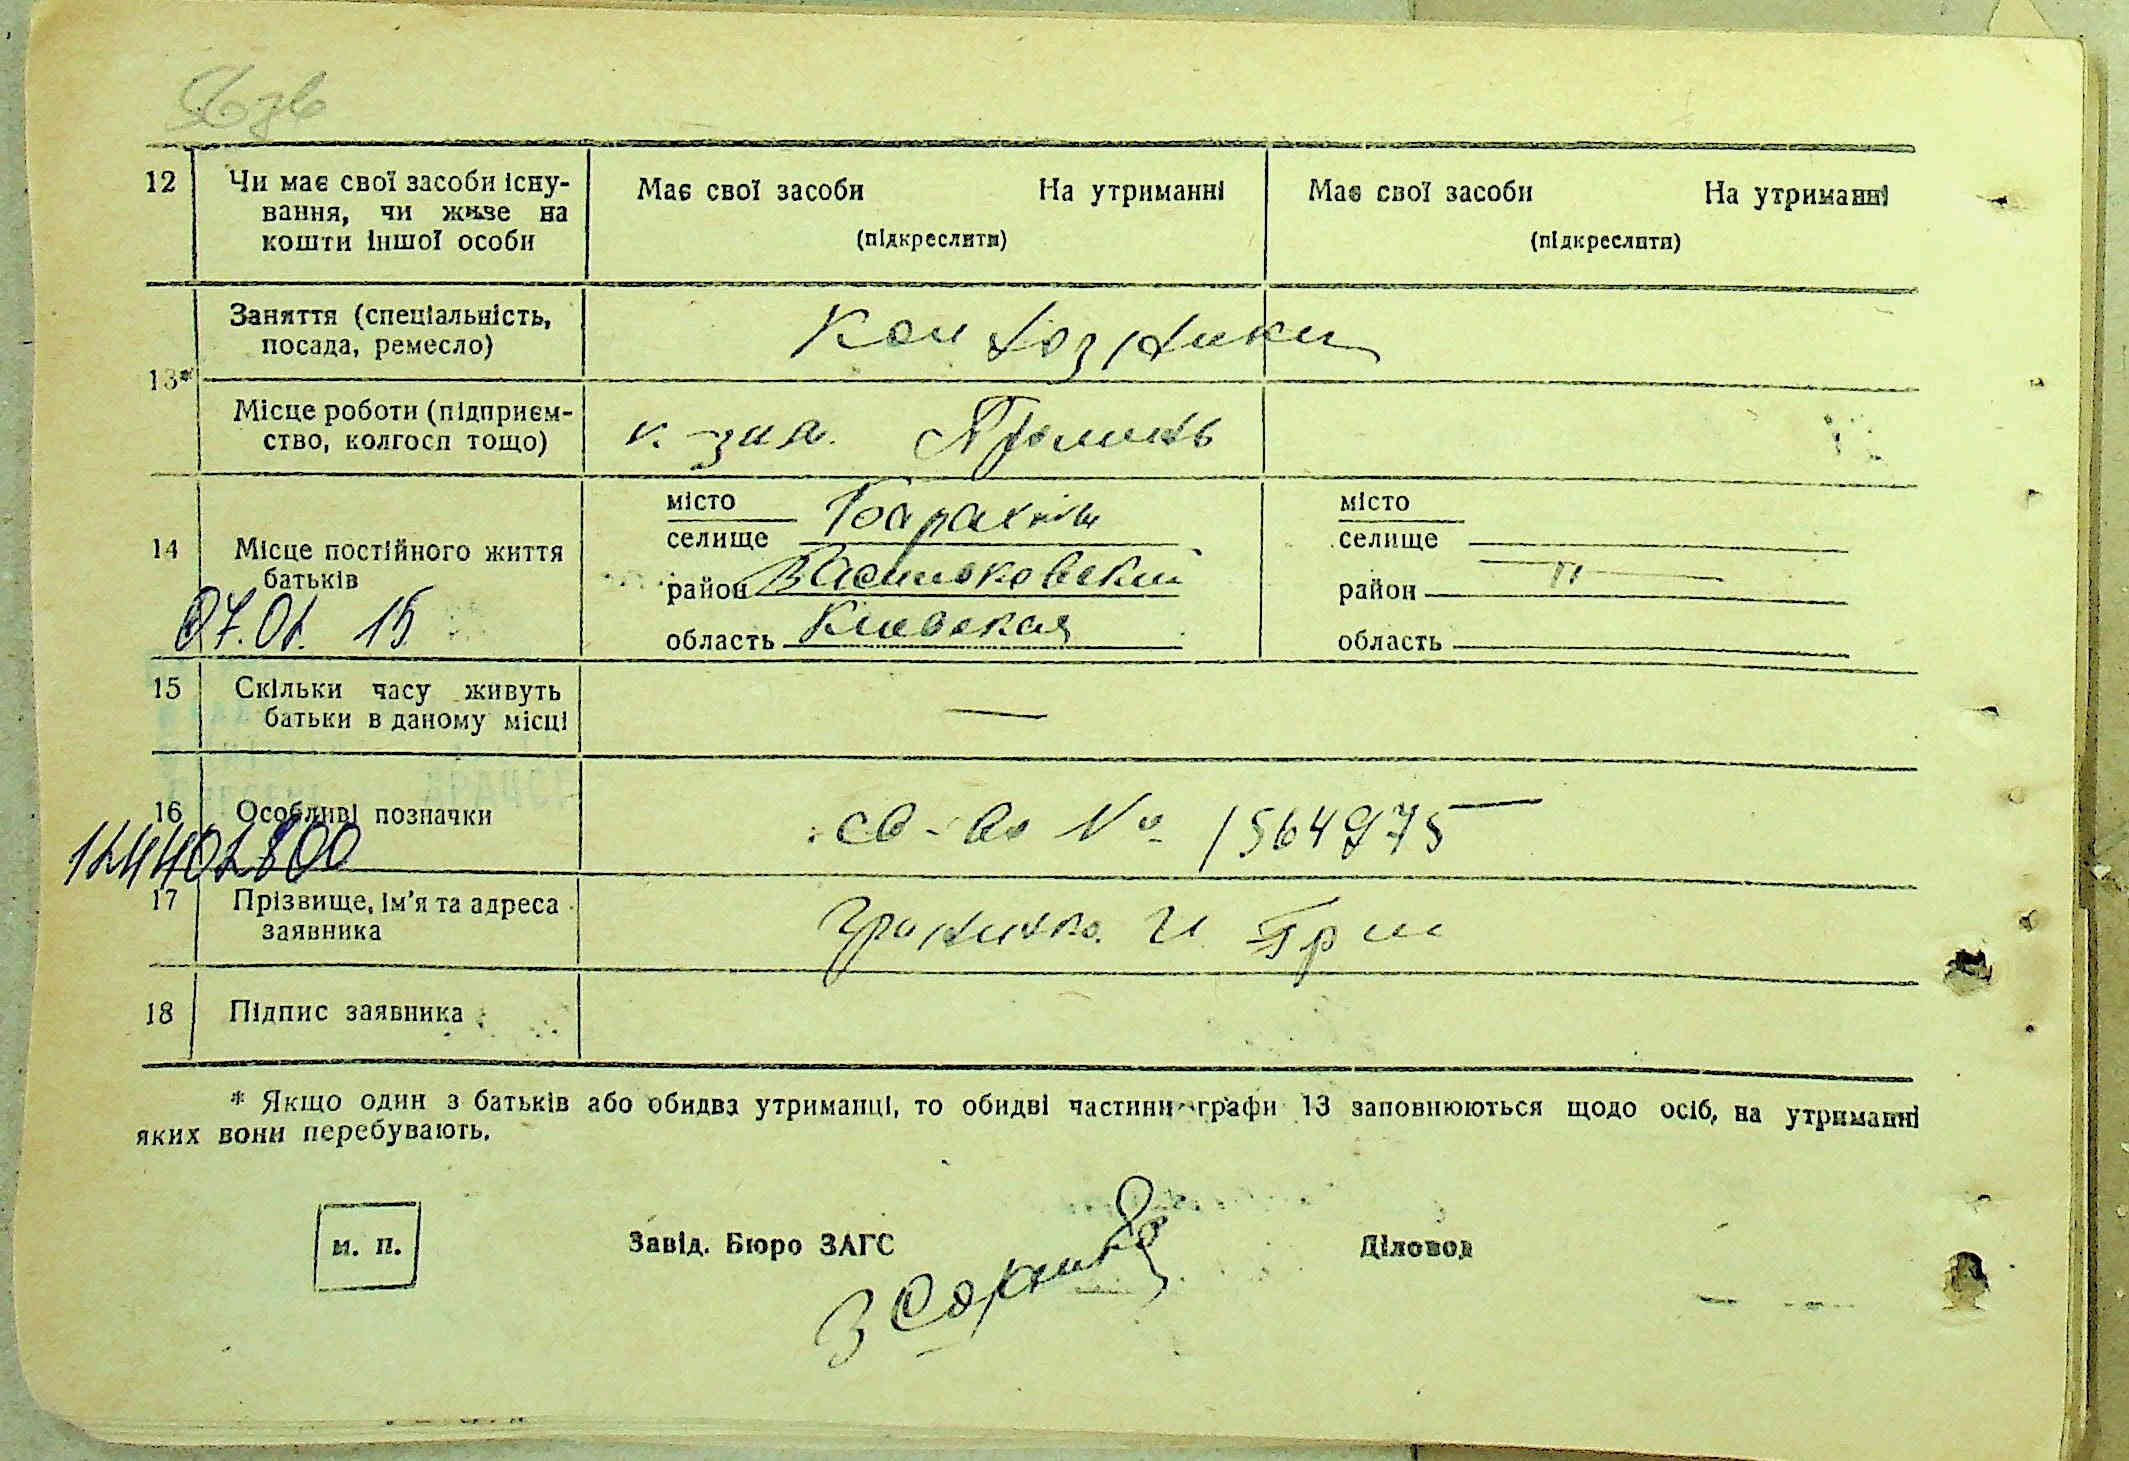 12 Чи має свої засоби існу-
вання, чи живе на
кошти іншої особи
Має свої засоби На утриманні
(підкреслити)
Має свої засоби На утриманні
(підкреслити)
13*
Заняття (спеціальність,
посада, ремесло)
Колхозники
Місце роботи (підприєм-
ство, колгосп тощо)
к-з им. Промінь
14 Місце постійного життя
батьків
07.01. 15
місто
селище Барахти
район Васильковский
область Киевская
місто
селище
район — " —
область
15 Скільки часу живуть
батьки в даному місці
—
16 Особливі позначки
св-во № 1564975
124402800
17 Прізвище, ім'я та адреса
заявника
18 Підпис заявника
* Якщо один з батьків або обидва утриманці, то обидві частини графи 13 заповнюються щодо осіб, на утриманні
яких вони перебувають.
м. п.
Завід. Бюро ЗАГС
Діловод